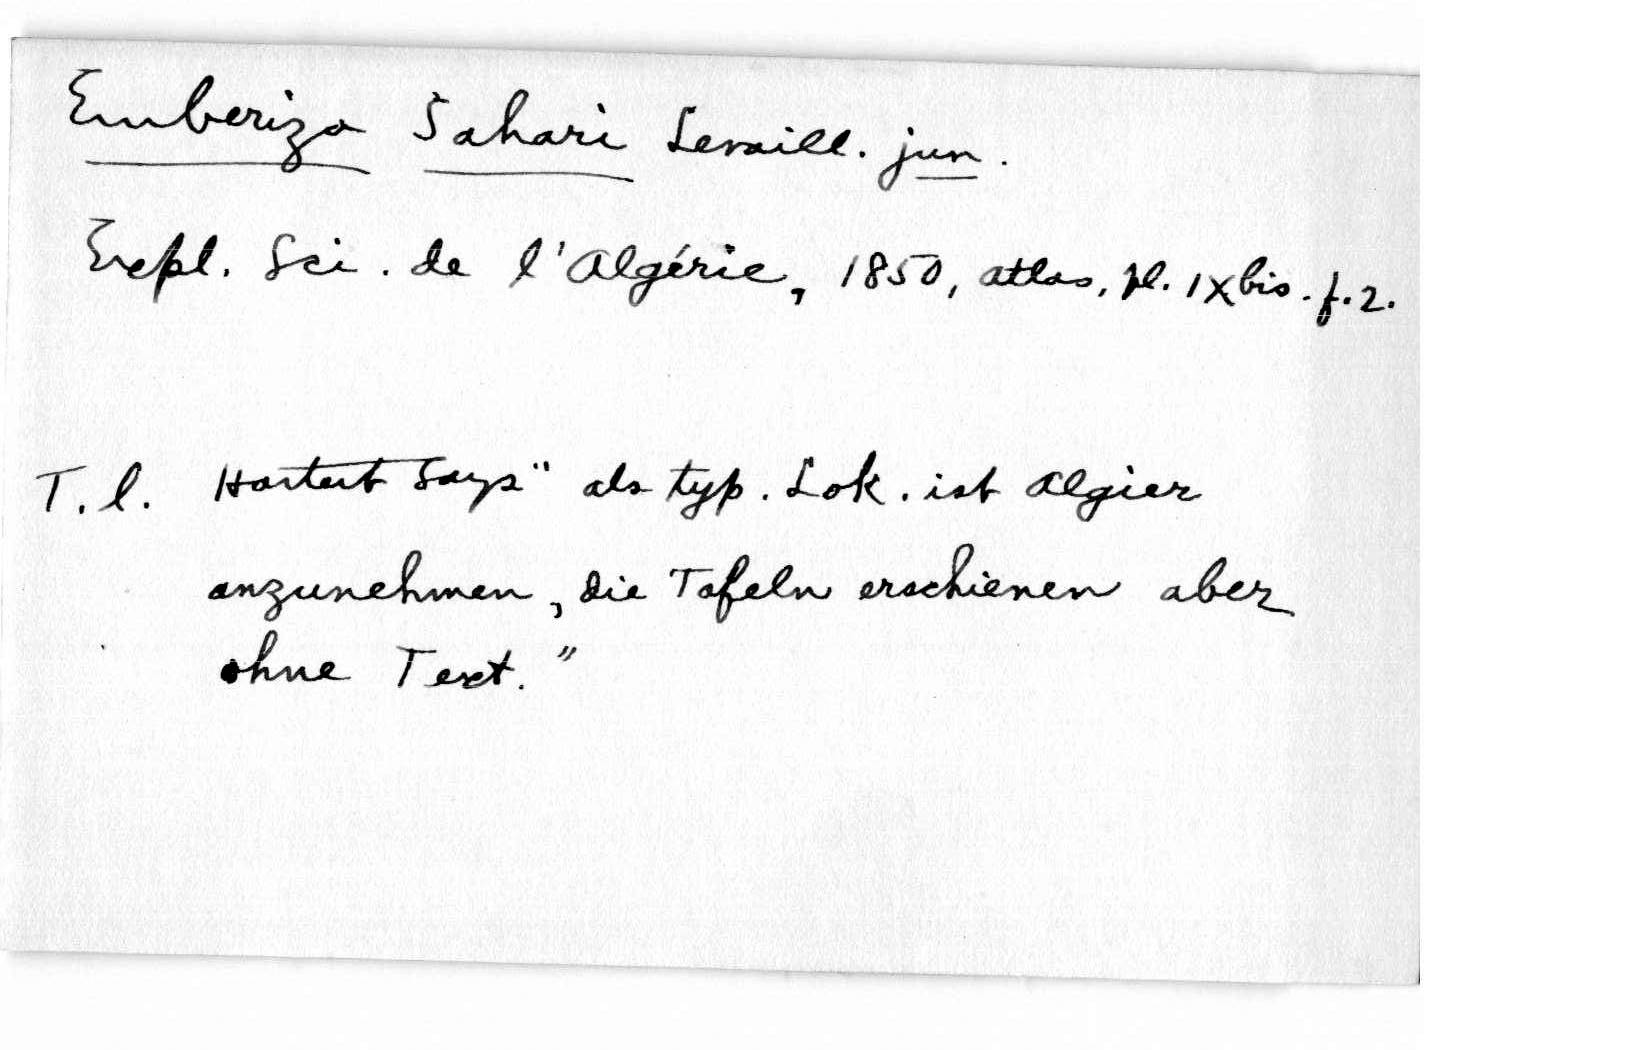 Emberiza Sahari Levaill. jun.
Expl. Sci. de l'Algérie, 1850, atlas, pl. IX bis. f. 2.
T. l. Hartert says "als typ. Lok. ist Algier
anzunehmen, die Tafeln erschienen aber
ohne Text."